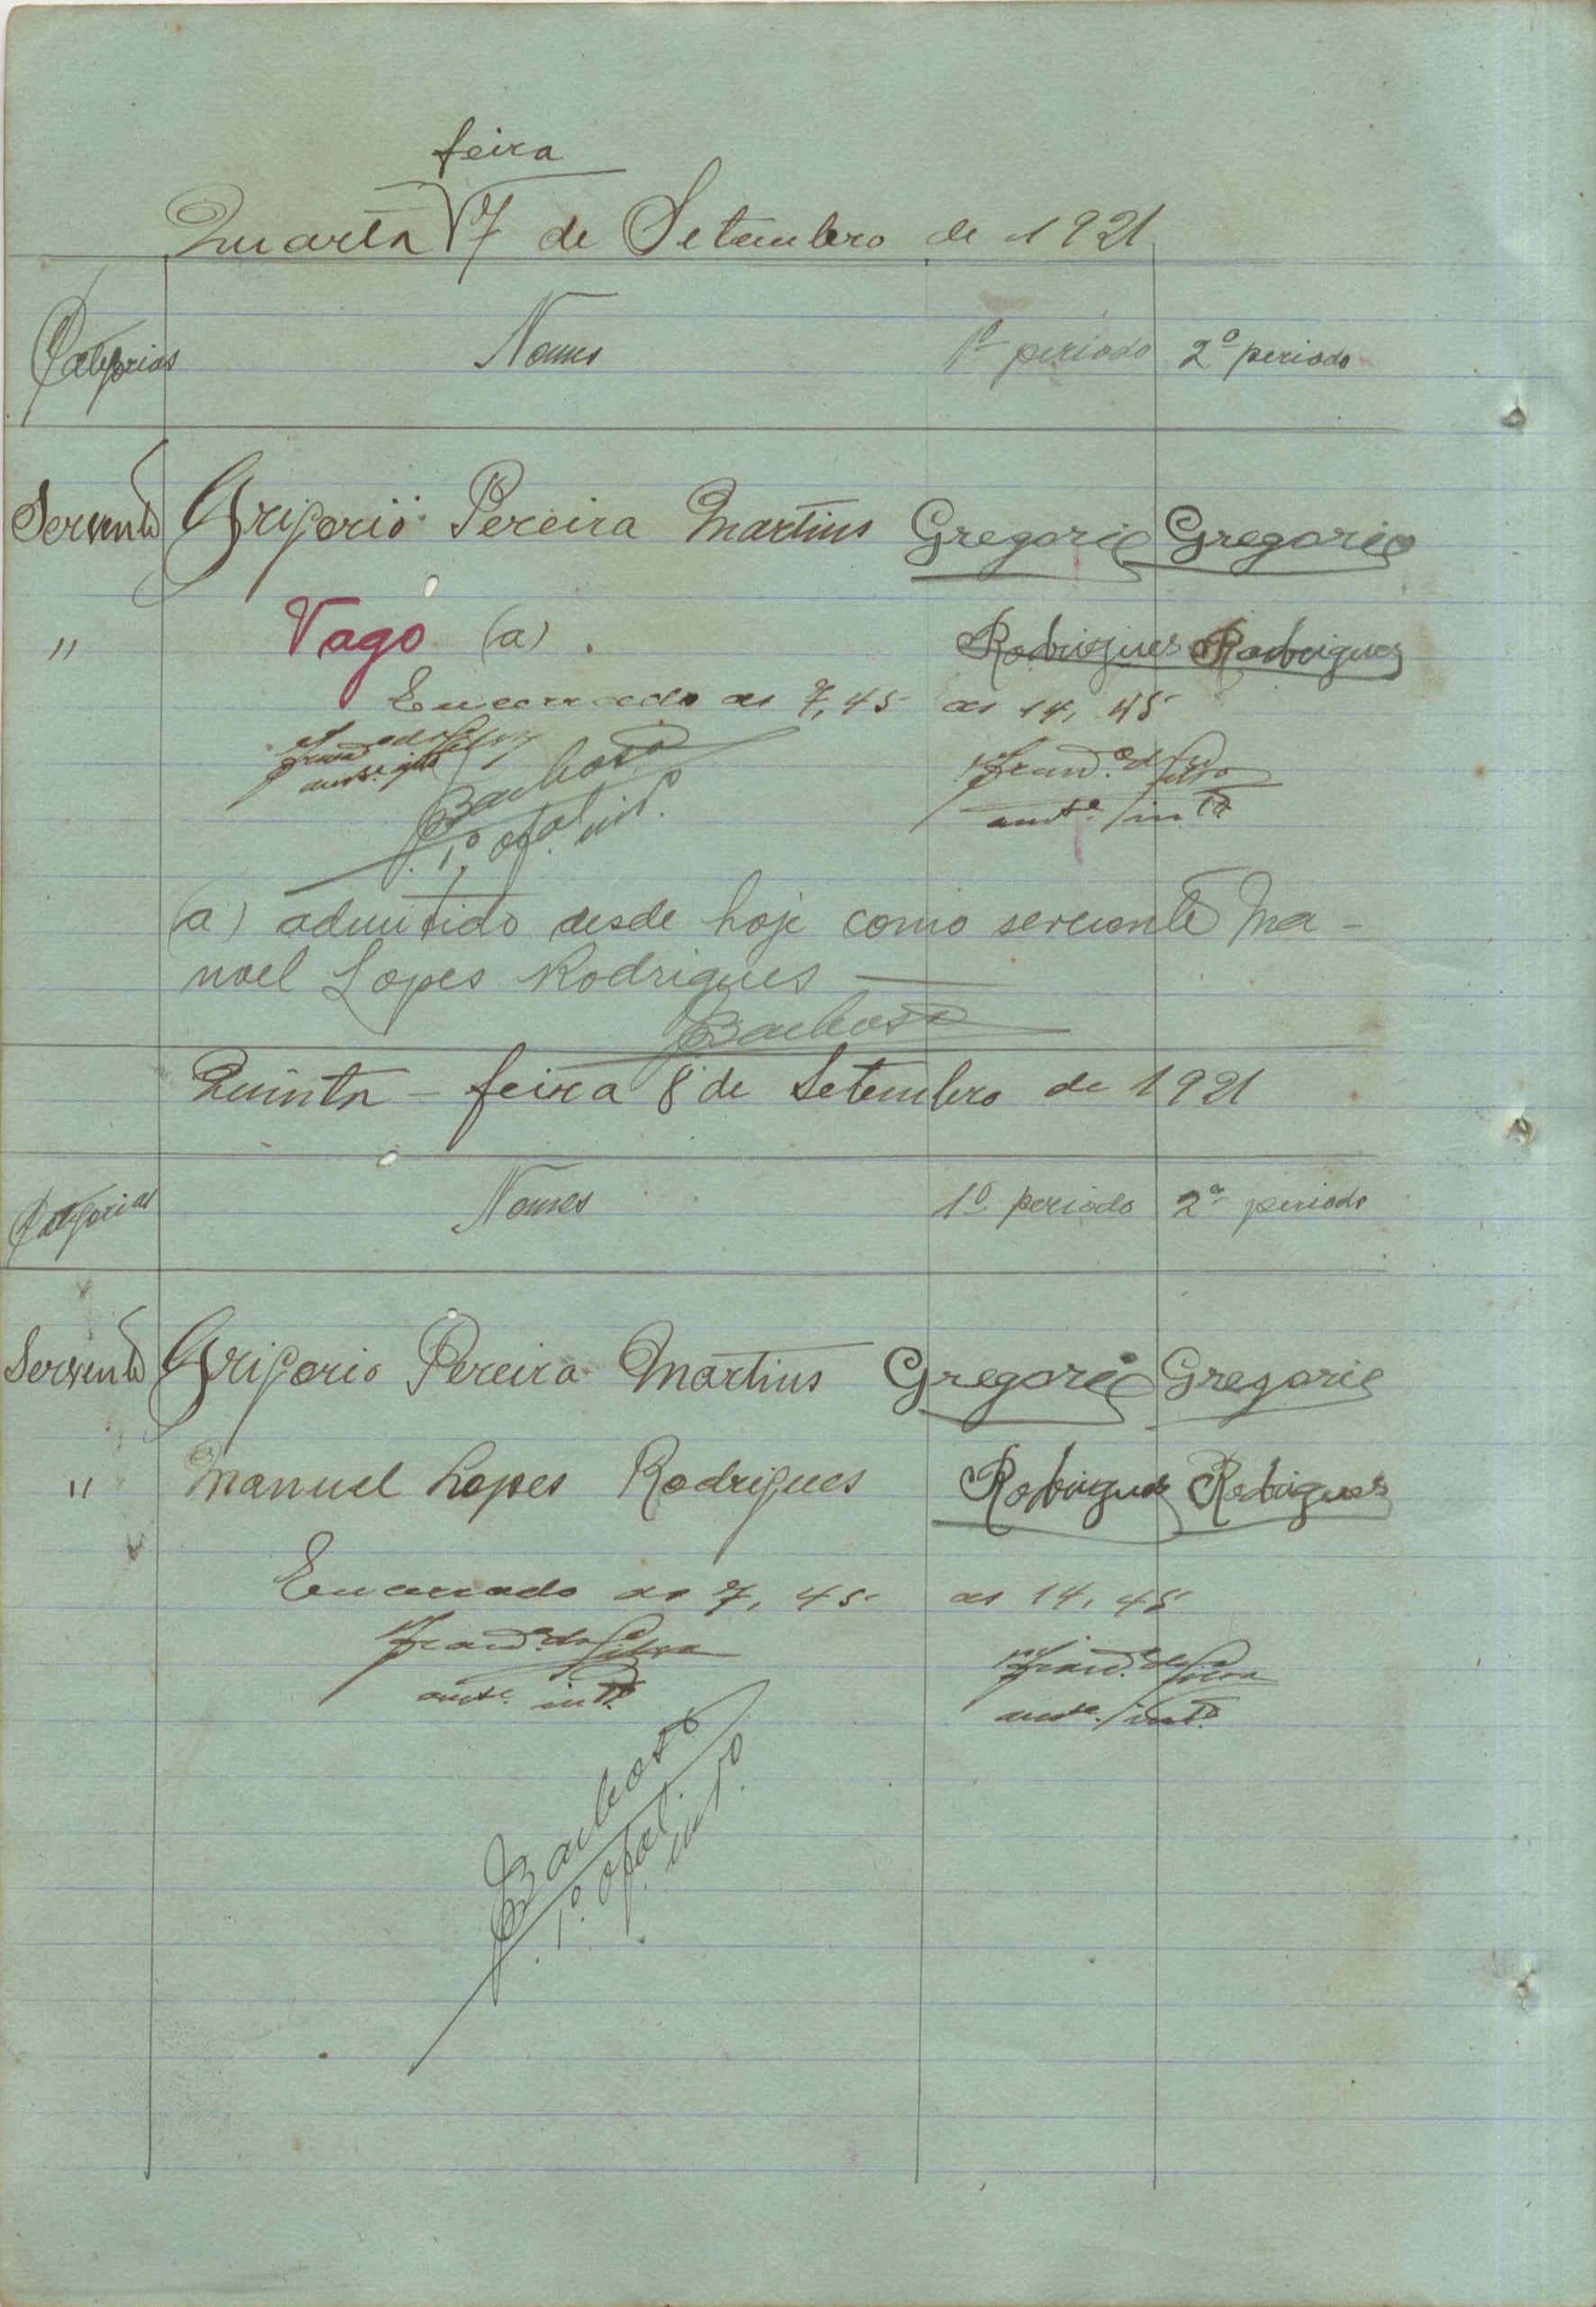 feira
Quarta 7 de Setembro de 1921
Categorias Nomes 1º periodo 2º periodo
Servente Grigorio Pereira Martins Gregorio Gregorio
" Vago (a). Rodrigues Rodrigues
Encerrado as 7,45 as 14,45
Barbosa
1º ofal. intº.
(a) admitido desde hoje como servente Ma-
noel Lopes Rodrigues
Barbosa
Quinta-feira 8 de Setembro de 1921
Categorias Nomes 1º periodo 2º periodo
Servente Grigorio Pereira Martins Gregorio Gregorio
" Manuel Lopes Rodrigues Rodrigues Rodrigues
Encerrado as 7,45 as 14,45
Barbosa
1º. ofal. intº.